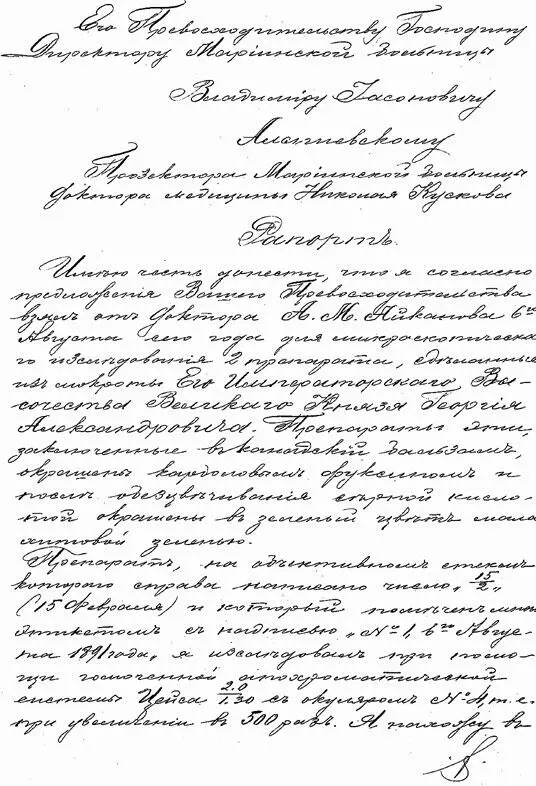 Его Превосходительству Господину
Директору Маріинской больницы
Владиміру Іасоновичу
Алышевскому
Прозектора Маріинской больницы
доктора медицины Николая Кускова
Рапортъ.
Имѣю честь донести, что я согласно
предложенія Вашего Превосходительства
взялъ отъ доктора А. М. Айканова 6го
Августа сего года для микроскопическа-
го изслѣдованія 2 препарата, сдѣланные
изъ мокроты Его Императорскаго Вы-
сочества Великаго Князя Георгія
Александровича. Препараты эти,
заключенные въ канадскій бальзамъ,
окрашены карболовымъ фуксиномъ и
послѣ обезцвѣчиванія сѣрной кисло-
той окрашены въ зеленый цвѣтъ мала-
хитовой зеленью.
Препаратъ, на объективномъ стеклѣ
котораго справа написано число „15/2“
(15 Февраля) и который помѣченъ мною
этикетомъ съ надписью „№ 1, 6го Авгус-
та 1891 года“ я изслѣдовалъ при помо-
щи гомогенной апохроматической
системы Цейса 2.0/1.30 съ окуляромъ № 4, т.е.
при увеличеніи въ 500 разъ. Я нахожу въ